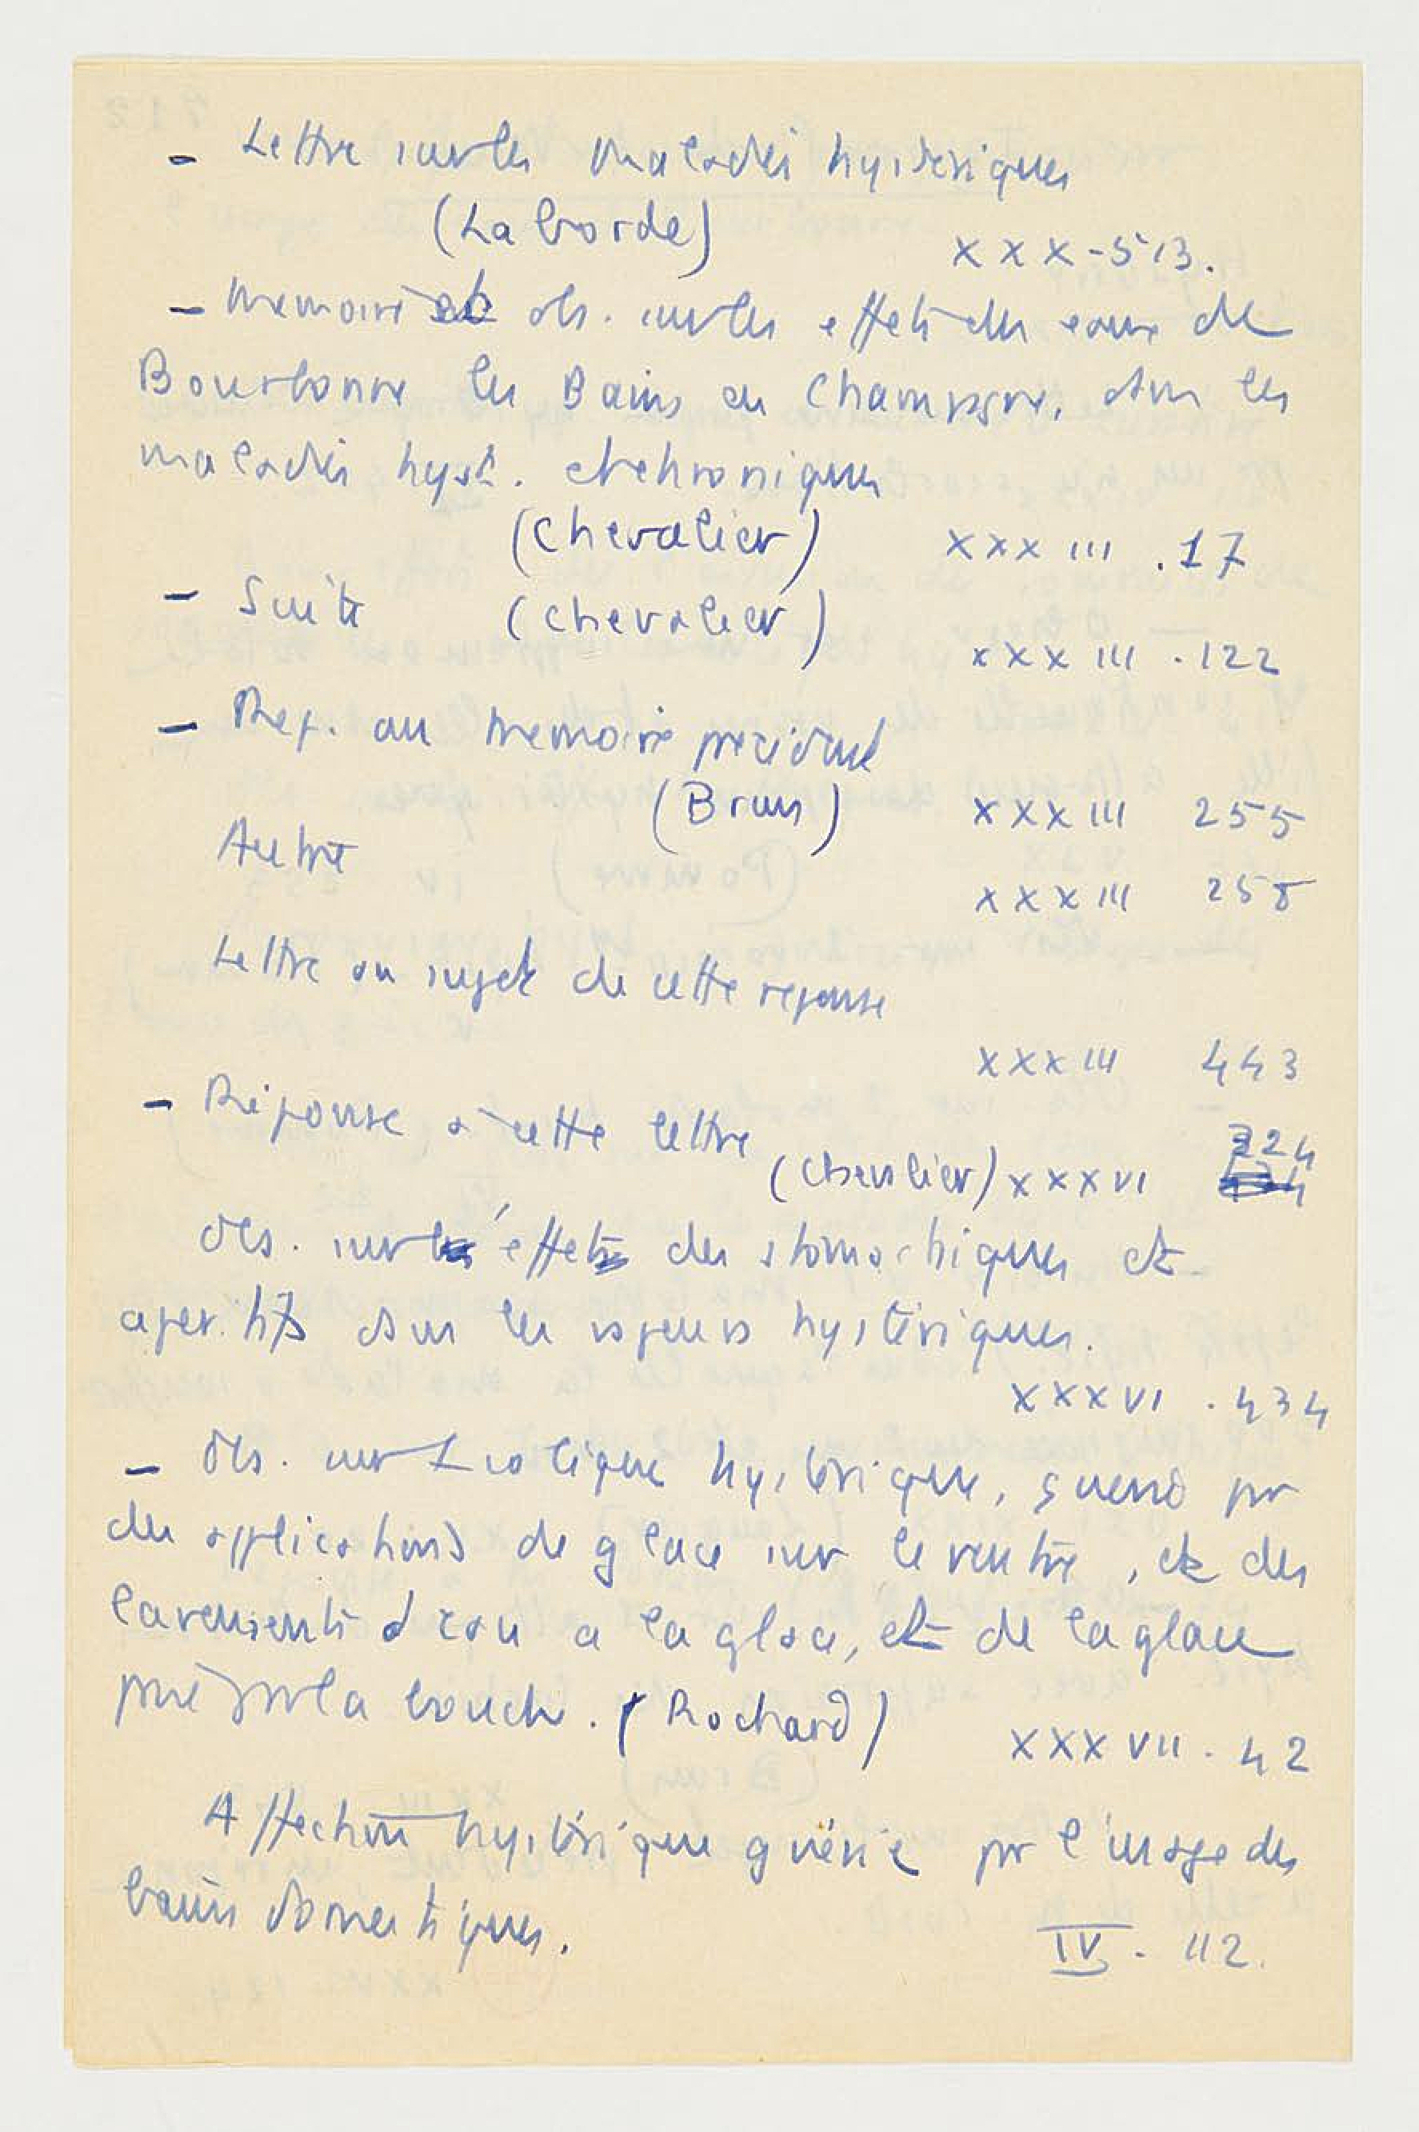 - Lettre sur les maladies hystériques
(Laborde) XXX-513.
- Memoire et obs. sur les effets des eaux de
Bourbonne les Bains en Champagne, dans les
maladies hyst. et chroniques
(Chevalier) XXXIII . 17
- Suite (Chevalier)
XXXIII . 122
- Rep. au memoire precedent
(Brun) XXXIII 255
Autre
XXXIII 258
Lettre au sujet de cette reponse
XXXIII 443
- Réponse à cette lettre
(Chevalier) XXXVI 224
Obs. sur les effets des stomachiques et
aperitifs dans les vapeurs hystériques.
XXXVI . 434
- Obs. sur 1 colique hystérique, guerie par
des applications de glace sur le ventre, et des
lavements d'eau a la glace, et de la glace
prise par la bouche. (Rochard)
XXXVII . 42
Affection hystérique guérie par l'usage des
bains domestiques.
IV . 112.